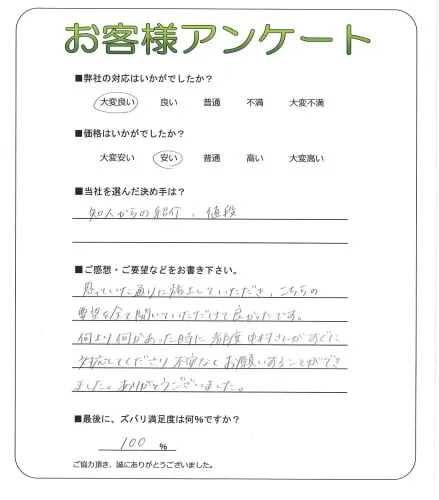 お客様アンケート
■弊社の対応はいかがでしたか？
大変良い 良い 普通 不満 大変不満
■価格はいかがでしたか？
大変安い 安い 普通 高い 大変高い
■当社を選んだ決め手は？
知人からの紹介、値段
■ご感想・ご要望などをお書き下さい。
思っていた通りに施工していただき、こちらの
要望を全て聞いていただけて良かったです。
何より何かあった時に都度中村さんがすぐに
対応してくださり不安なくお願いすることができ
ました。ありがとうございました。
■最後に、ズバリ満足度は何％ですか？
100 ％
ご協力頂き、誠にありがとうございました。